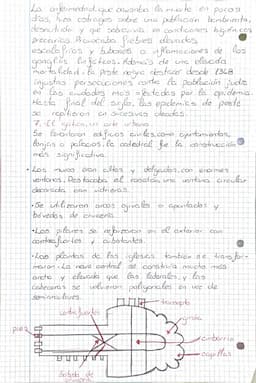 La enfermedad, que causaba la muerte en pocos
días, hizo estragos sobre una población hambrienta,
desnutrida y que sobrevivía en condiciones higiénicas
precarias. Provocaba fiebres elevadas,
escalofríos y bubones o inflamaciones de los
ganglios linfáticos. Además de una elevada
mortalidad, la Peste Negra desde 1348
injustas persecuciones contra la población judía
en las ciudades más afectadas por la epidemia.
Hasta final del siglo, las epidemias de peste
se repitieron en sucesivas oleadas.
7. El gótico, un arte urbano
Se levantaron edificios civiles como ayuntamientos,
lonjas o palacios. La catedral fue la construcción
más significativa.
• Los muros eran altos y delgados, con enormes
ventanas. Destacaba el rosetón, una ventana circular
decorada con vidrieras.
• Se utilizaron arcos ojivales o apuntados y
bóvedas de crucería.
• Los pilares se reforzaron en el exterior con
contrafuertes y arbotantes.
• Las plantas de las iglesias también se transfor-
maron. La nave central se construía mucho más
ancha y elevada que las laterales, y las
cabeceras se volvieron poligonales en vez de
semicirculares.
transepto
contrafuertes
girola
pies
cimborrio
capillas
bóveda de
crucería